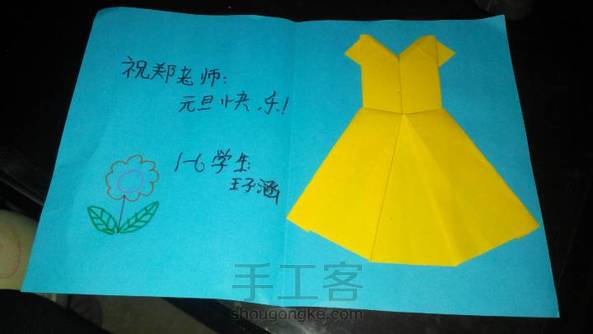 祝郑老师:
元旦快乐!
1-6学生
王子涵
手工客
shougongke.com